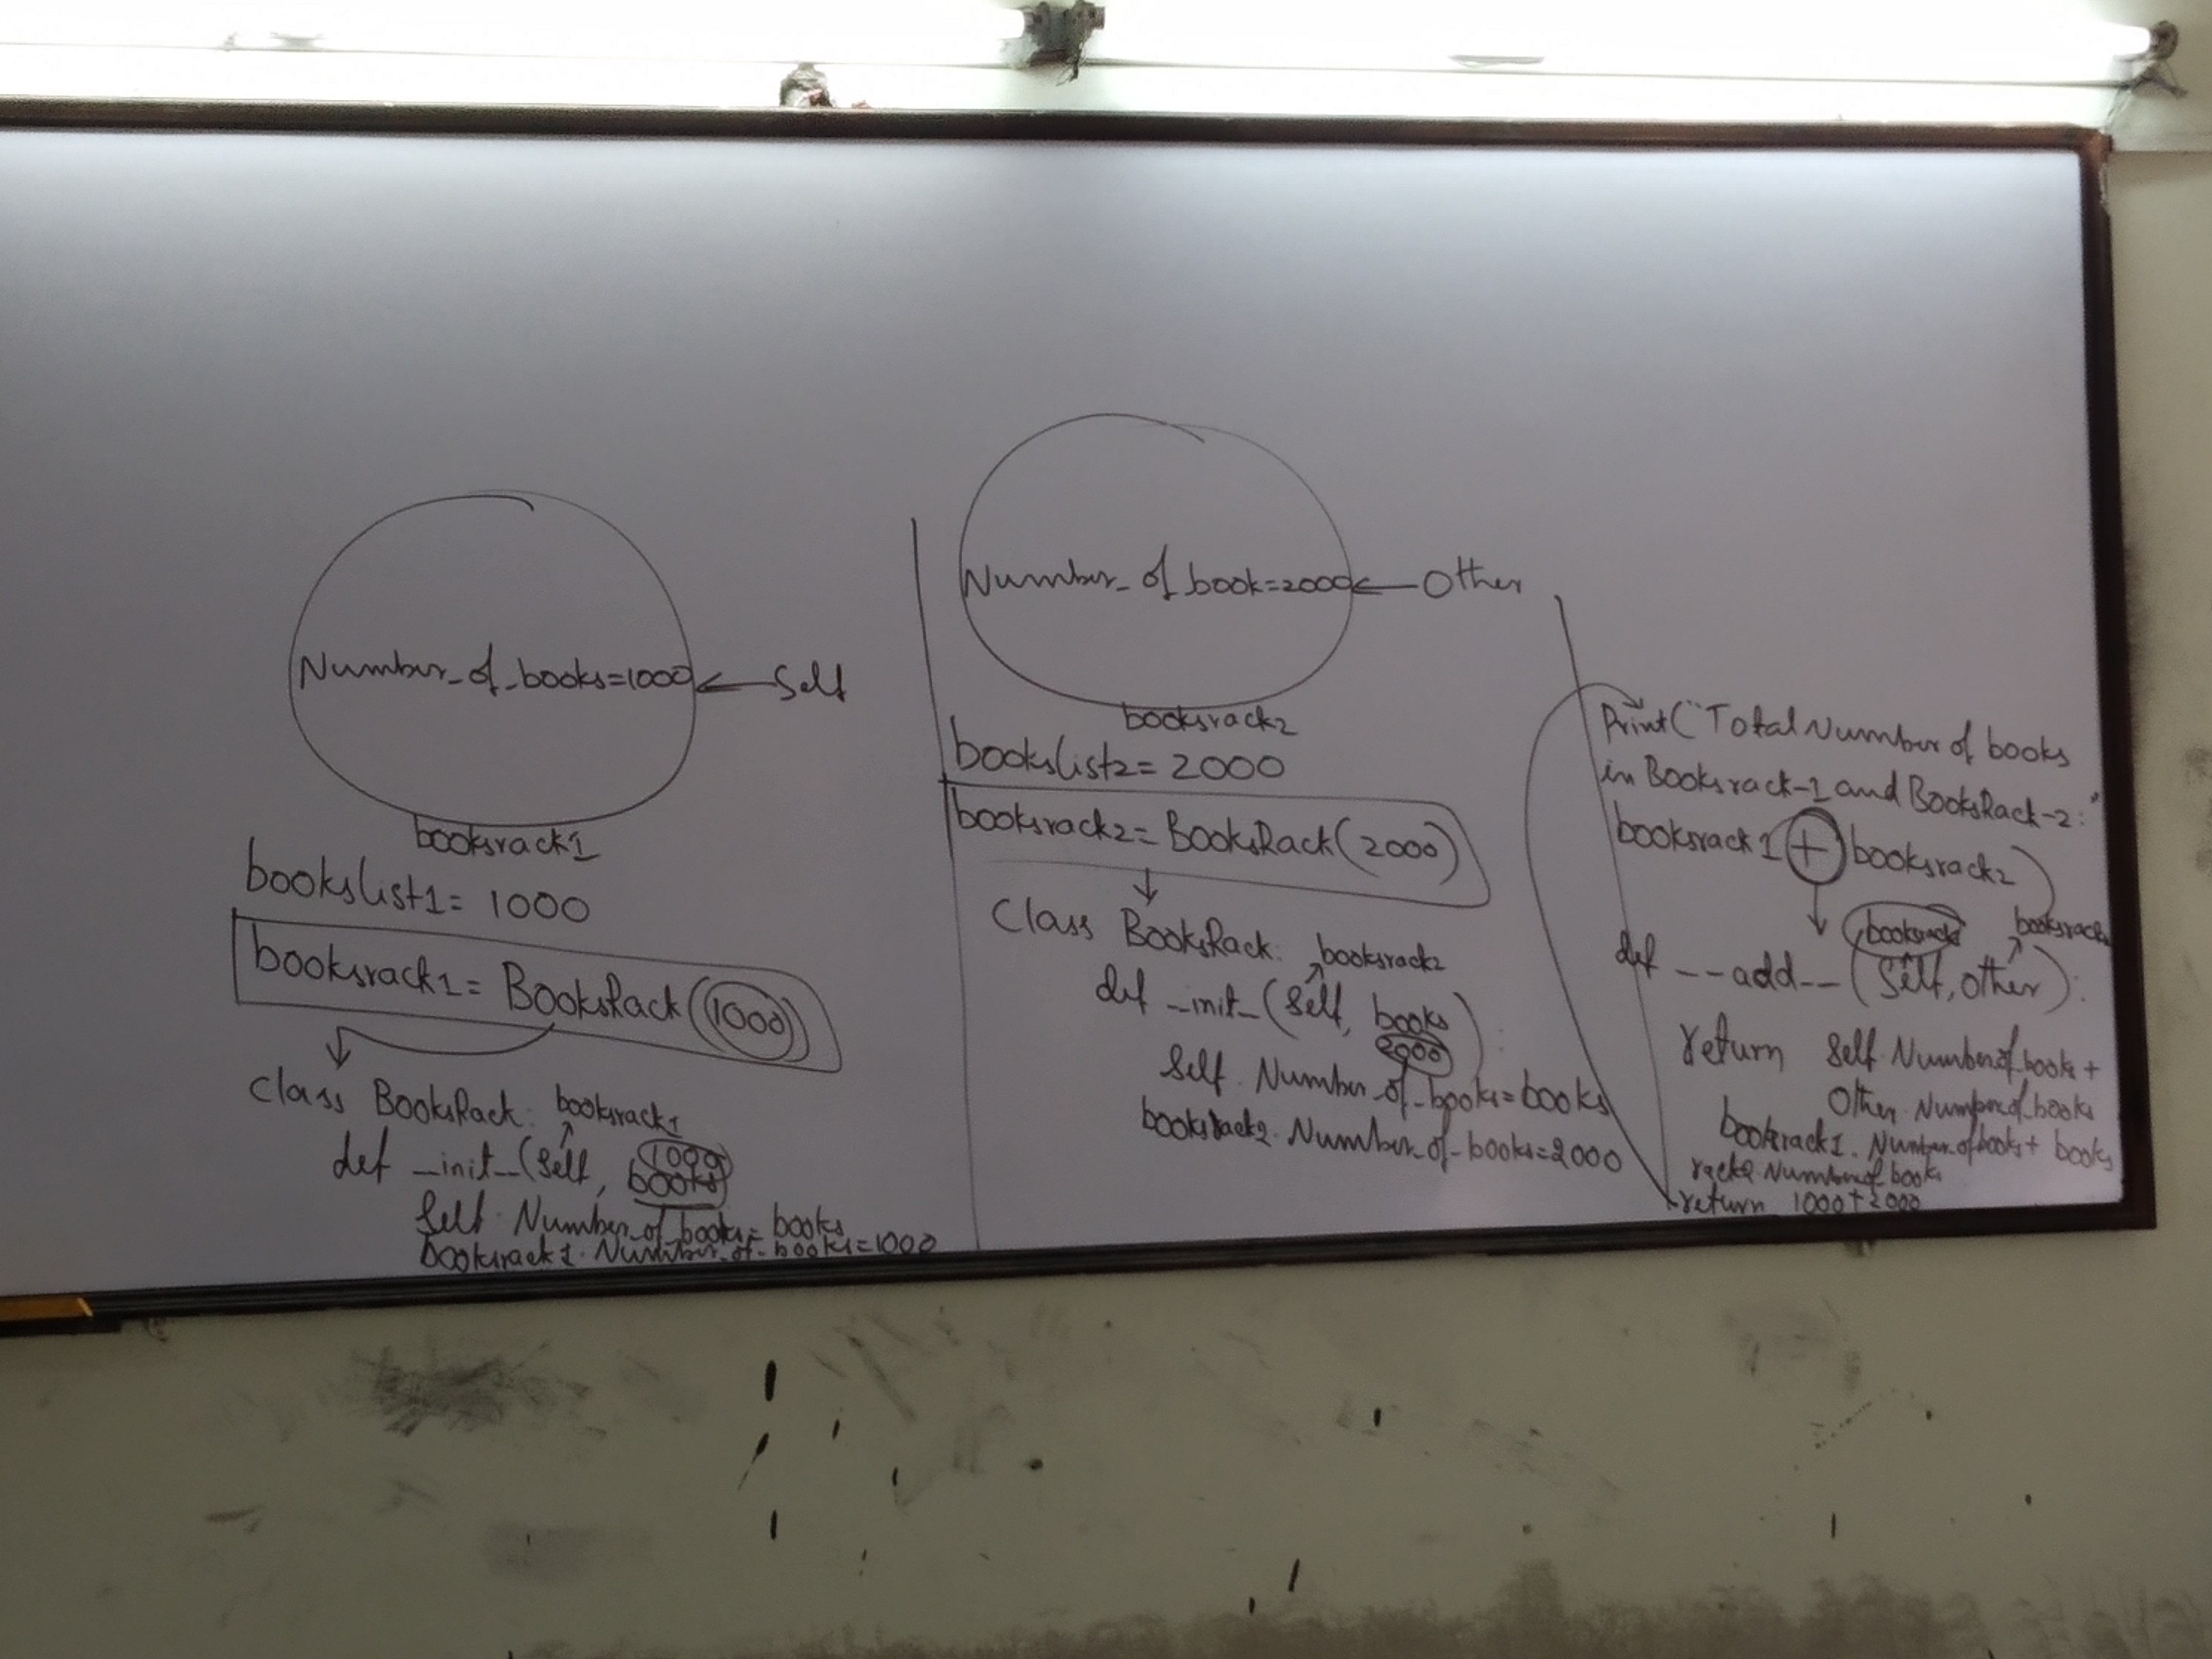 Number_of_books=1000 ← Self
booksrack1
bookslist1= 1000
booksrack1= BooksRack(1000)
Class BooksRack: booksrack1
def __init__(Self, 1000
books
Self. Number_of_books= books
booksrack1. Number_of_books=1000
Number_of book=2000 ← Other
booksrack2
bookslist2= 2000
booksrack2= BooksRack(2000)
Class BooksRack: booksrack2
def __init__(Self, books):
2000
Self. Number_of_books=books
booksrack2. Number_of_books=2000
Print("Total Number of books
in Booksrack-1 and BooksRack-2:"
booksrack1 + booksrack2)
booksrack booksrack2
def __add__(Self, other):
return Self.Numberof_books+
Other.Numberof_books
booksrack1. Number_of books+ books
rack2.Numberof_books
return 1000+2000